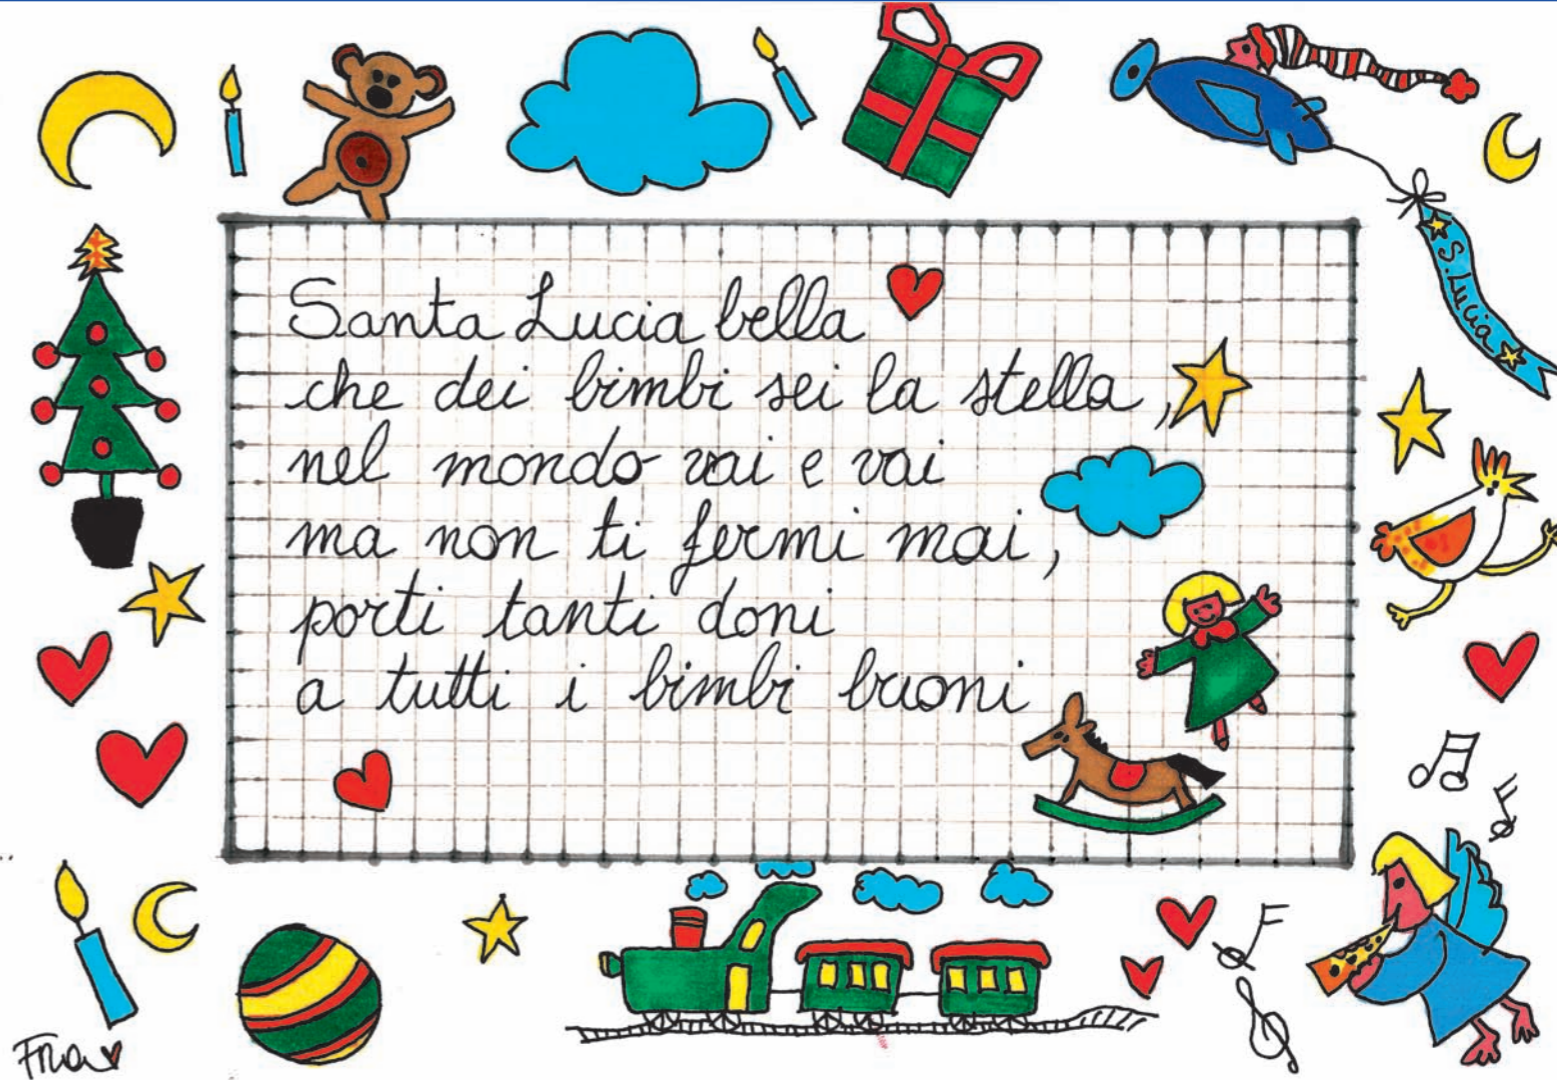 S. Lucia
Santa Lucia bella
che dei bimbi sei la stella,
nel mondo vai e vai
ma non ti fermi mai,
porti tanti doni
a tutti i bimbi buoni
Fra